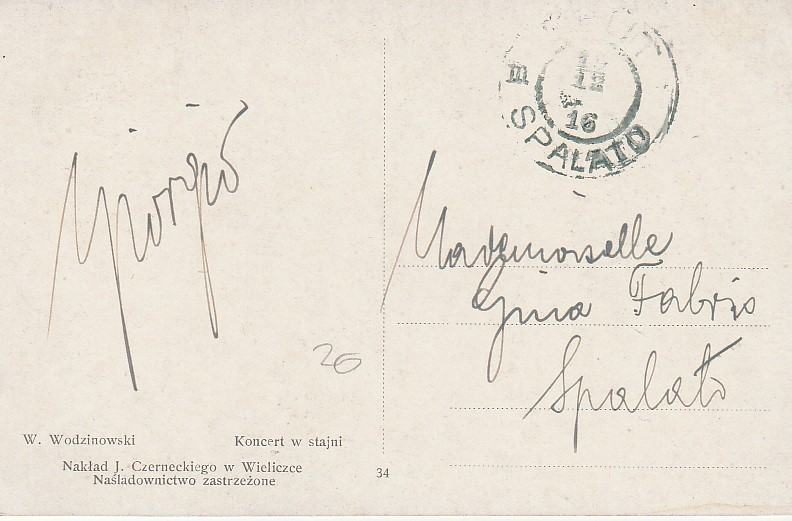 SPLIT
III
16
SPALATO
Giorgio
Mademoiselle
Gina Fabris
Spalato
26
W. Wodzinowski Koncert w stajni
Nakład J. Czerneckiego w Wieliczce
Naśladownictwo zastrzeżone
34